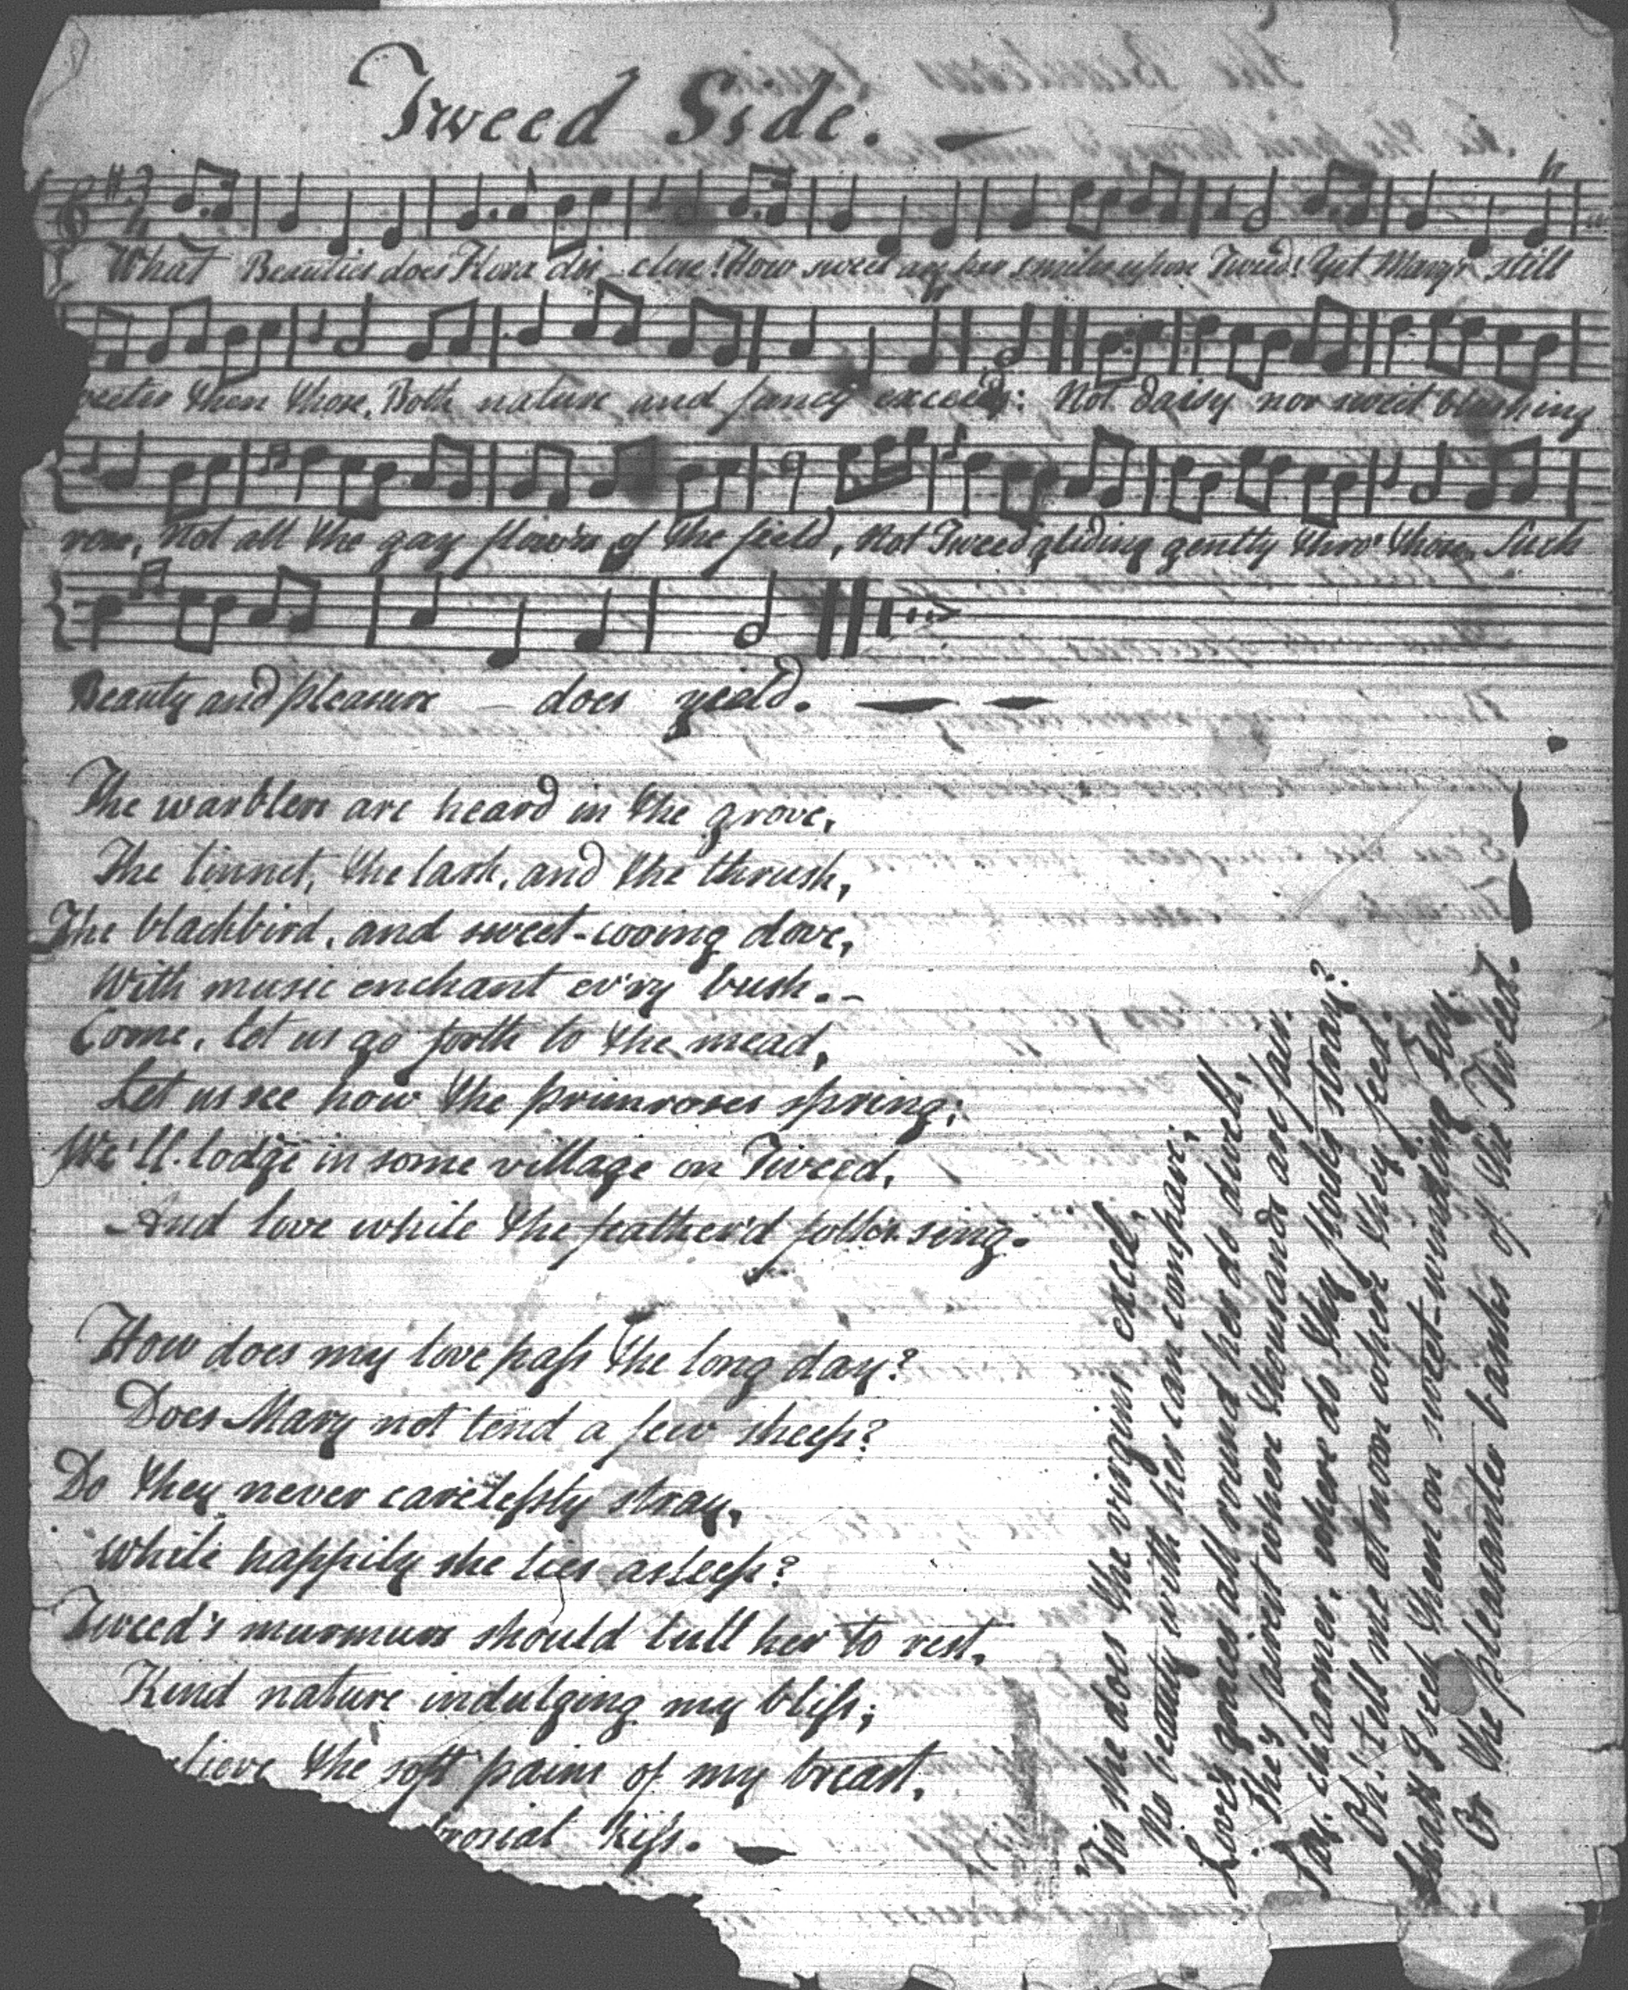 Tweed Side.
What Beauties does Flora dis-close! How sweet are her smiles upon Tweed! Yet Mary's still
weeter than those, Both nature and fancy exceed: Not daisy nor sweet blushing
rose, Not all the gay flow'rs of the field, Not Tweed gliding gently thro' those, Such
Beauty and pleasure does yield.
The warblers are heard in the grove,
The linnet, the lark, and the thrush,
The blackbird, and sweet-cooing dove,
With music enchant ev'ry bush.
Come, let us go forth to the mead,
Let us see how the primroses spring;
We'll lodge in some village on Tweed,
And love while the feather'd folks sing.
How does my love pass the long day?
Does Mary not tend a few sheep?
Do they never carelessly stray,
While happily she lies asleep?
Tweed's murmurs should lull her to rest,
Kind nature indulging my bliss;
elieve the soft pains of my breast,
brosial kiss.
'Tis she does the virgins excel,
No beauty with her can compare;
Love's graces all round her do dwell,
She's fairest where thousands are fair.
Say, charmer, where do thy flocks stray?
Oh! tell me at noon where they feed.
Shall I seek them on sweet-winding Tay,
Or the pleasanter banks of the Tweed.